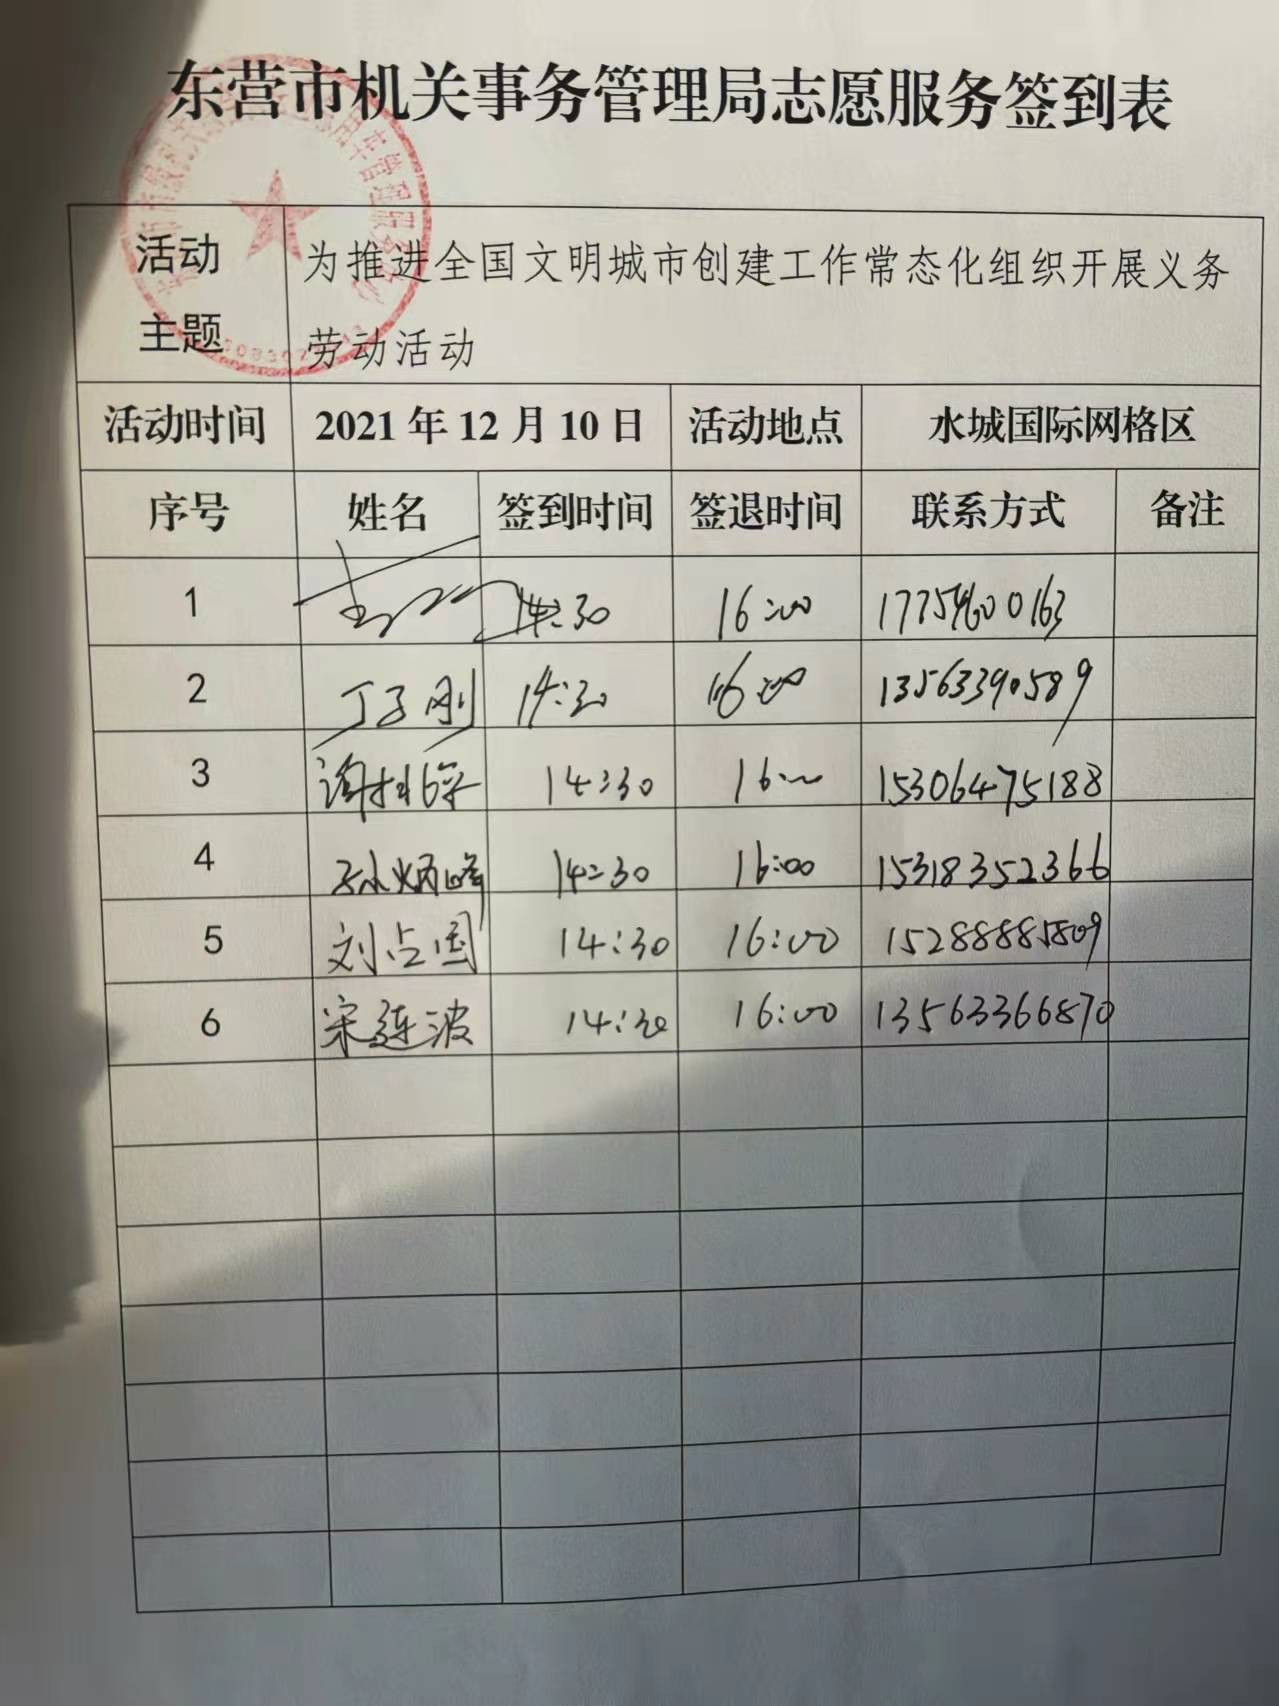 东营市机关事务管理局志愿服务签到表
活动主题 为推进全国文明城市创建工作常态化组织开展义务
劳动活动
活动时间 2021年12月10日 活动地点 水城国际网格区
序号 姓名 签到时间 签退时间 联系方式 备注
1 14:30 16:00 17754600163
2 丁子刚 14:30 16:00 13563390589
3 14:30 16:00 15306475188
4 孙炳峰 14:30 16:00 15318352366
5 刘占国 14:30 16:00 15288885809
6 宋延波 14:30 16:00 13563366870